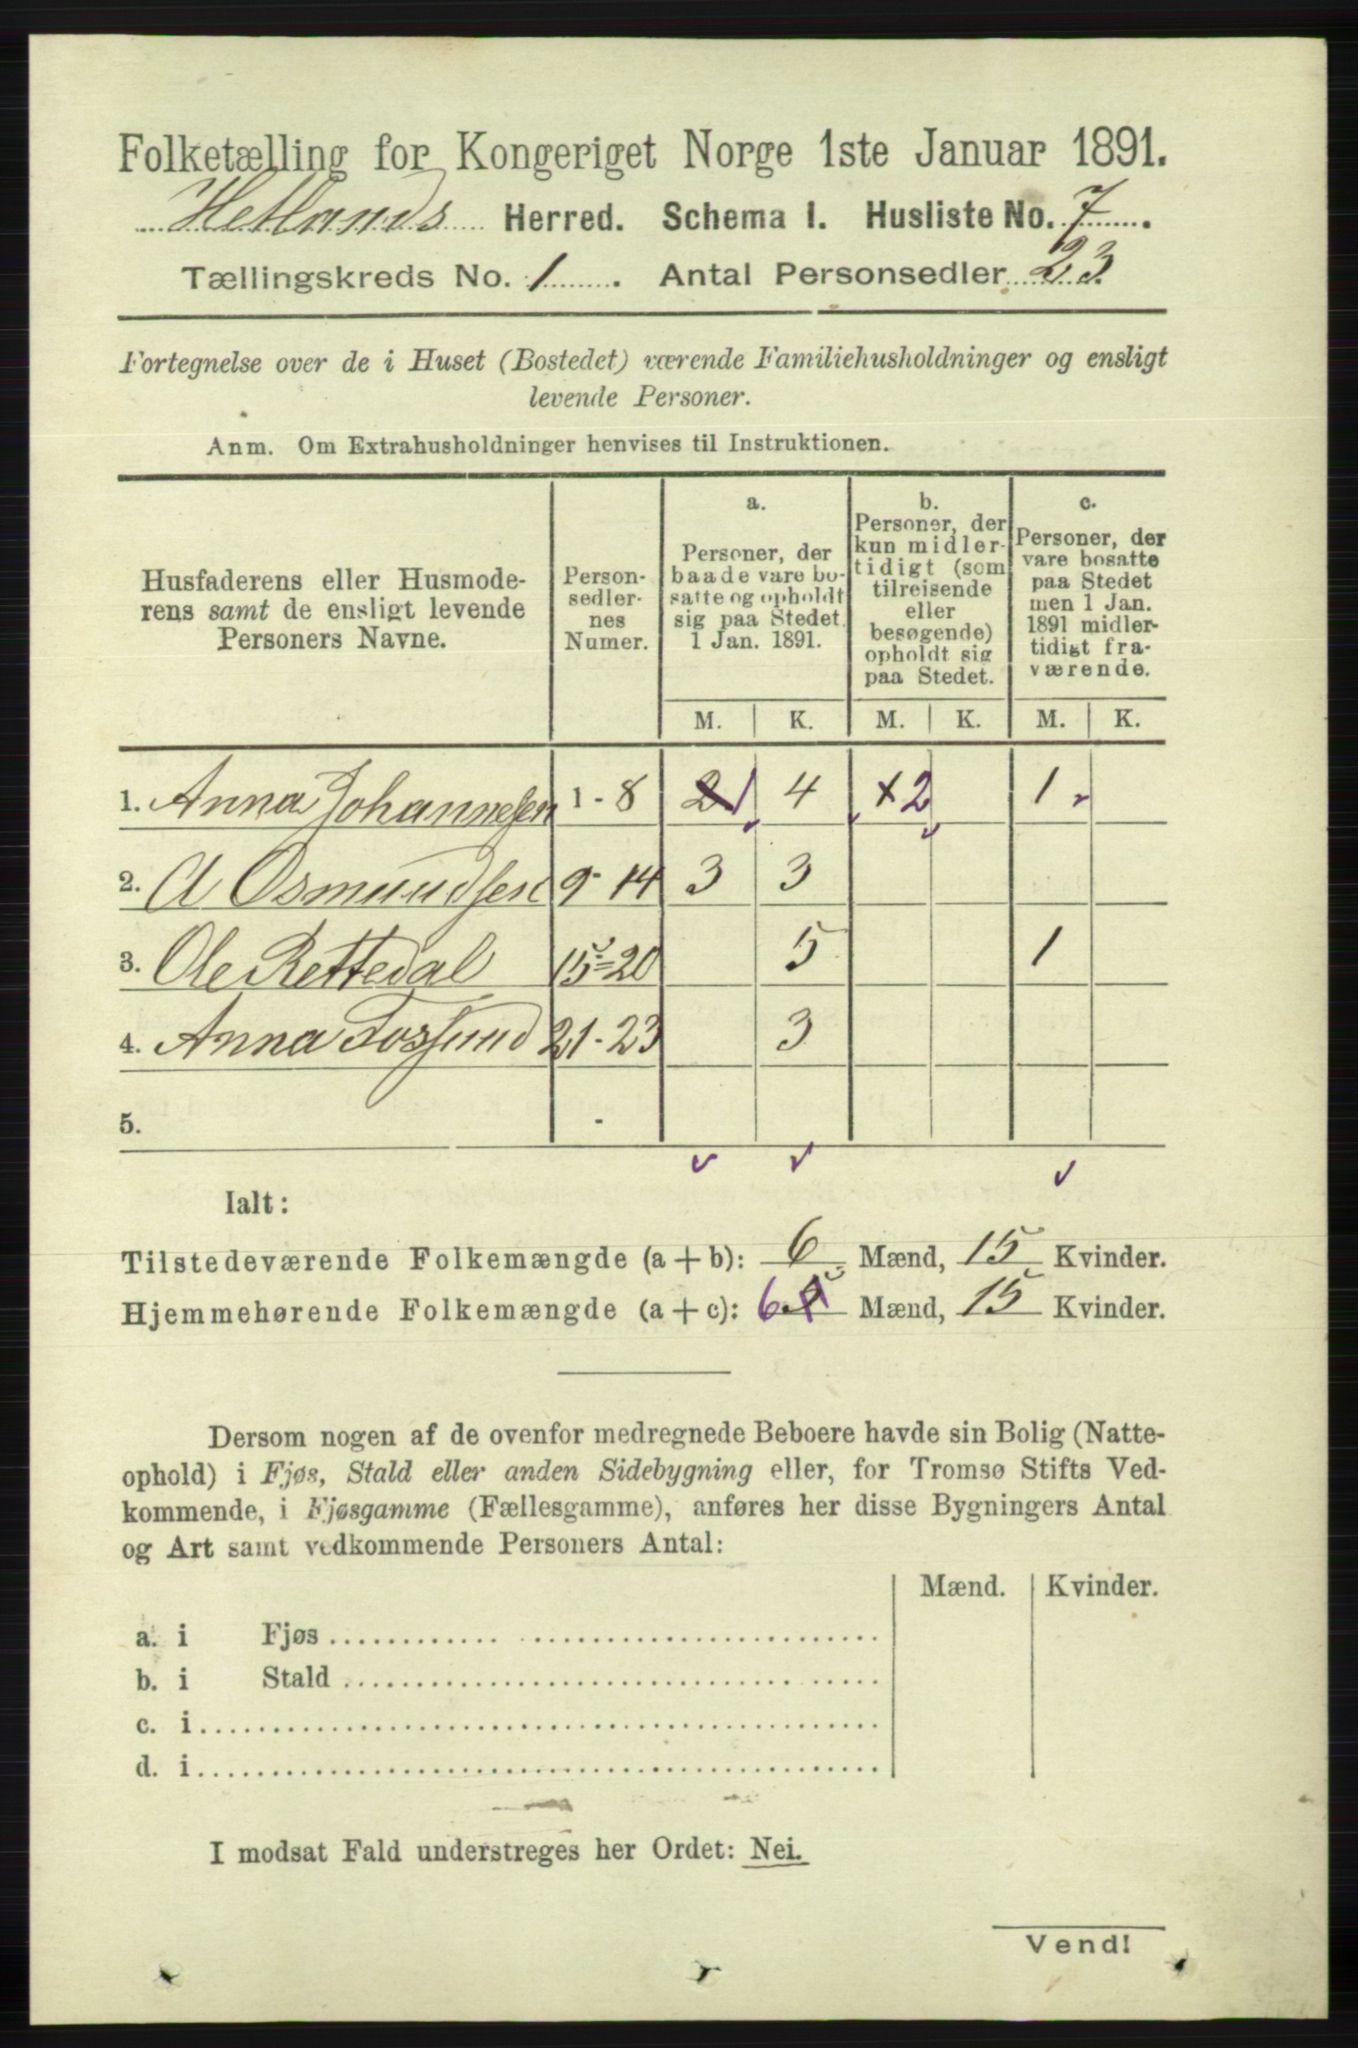 Folketælling for Kongeriget Norge 1ste Januar 1891.
Hetlands Herred. Schema I. Husliste No. 7.
Tællingskreds No. 1. Antal Personsedler 23
Fortegnelse over de i Huset (Bostedet) værende Familiehusholdninger og ensligt
levende Personer.
Anm. Om Extrahusholdninger henvises til Instruktionen.
Husfaderens eller Husmode-
rens samt de ensligt levende
Personers Navne.
Person-
sedler-
nes
Numer.
a.
Personer, der
baade vare bo-
satte og opholdt
sig paa Stedet
1 Jan. 1891.
b.
Personer, der
kun midler-
tidigt (som
tilreisende
eller
besøgende)
opholdt sig
paa Stedet.
c.
Personer, der
vare bosatte
paa Stedet
men 1 Jan.
1891 midler-
tidigt fra-
værende.
M. K. M. K. M. K.
1. Anna Johannesen 1 - 8 2 1 4 x 2 1
2. A Osmundsen 9 - 14 3 3
3. Ole Rettedal 15 - 20 5 1
4. Anna 21 - 23 3
5. -
Ialt:
Tilstedeværende Folkemængde (a + b): 6 Mænd, 15 Kvinder.
Hjemmehørende Folkemængde (a + c): 6 5 Mænd, 15 Kvinder.
Dersom nogen af de ovenfor medregnede Beboere havde sin Bolig (Natte-
ophold) i Fjøs, Stald eller anden Sidebygning eller, for Tromsø Stifts Ved-
kommende, i Fjøsgamme (Fællesgamme), anføres her disse Bygningers Antal
og Art samt vedkommende Personers Antal:
Mænd. Kvinder.
a. i Fjøs
b. i Stald
c. i
d. i
I modsat Fald understreges her Ordet: Nei.
Vend!